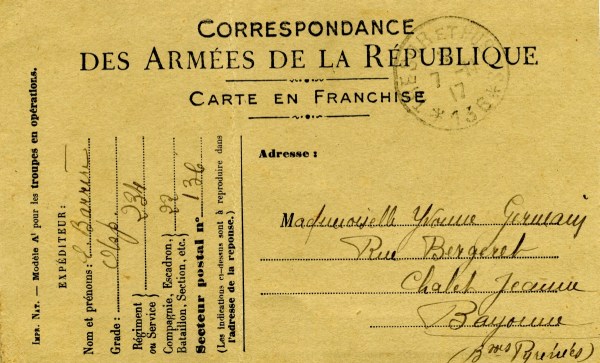 CORRESPONDANCE
DES ARMÉES DE LA RÉPUBLIQUE
CARTE EN FRANCHISE
TRESOR ET POSTES
7
17
* 136 *
Adresse :
Mademoiselle Yvonne Germain
Rue Bergeret
Chalet Jeanne
Bayonne
Bses Pyrénées)
IMPR. NAT. — Modèle A¹ pour les troupes en opérations.
EXPÉDITEUR :
Nom et prénoms : E. Barrère
Grade :
Régiment ou Service } 234
Compagnie, Escadron, Bataillon, Section, etc. } 22
Secteur postal n° 136
(Les indications ci-dessus sont à reproduire dans
l'adresse de la réponse.)